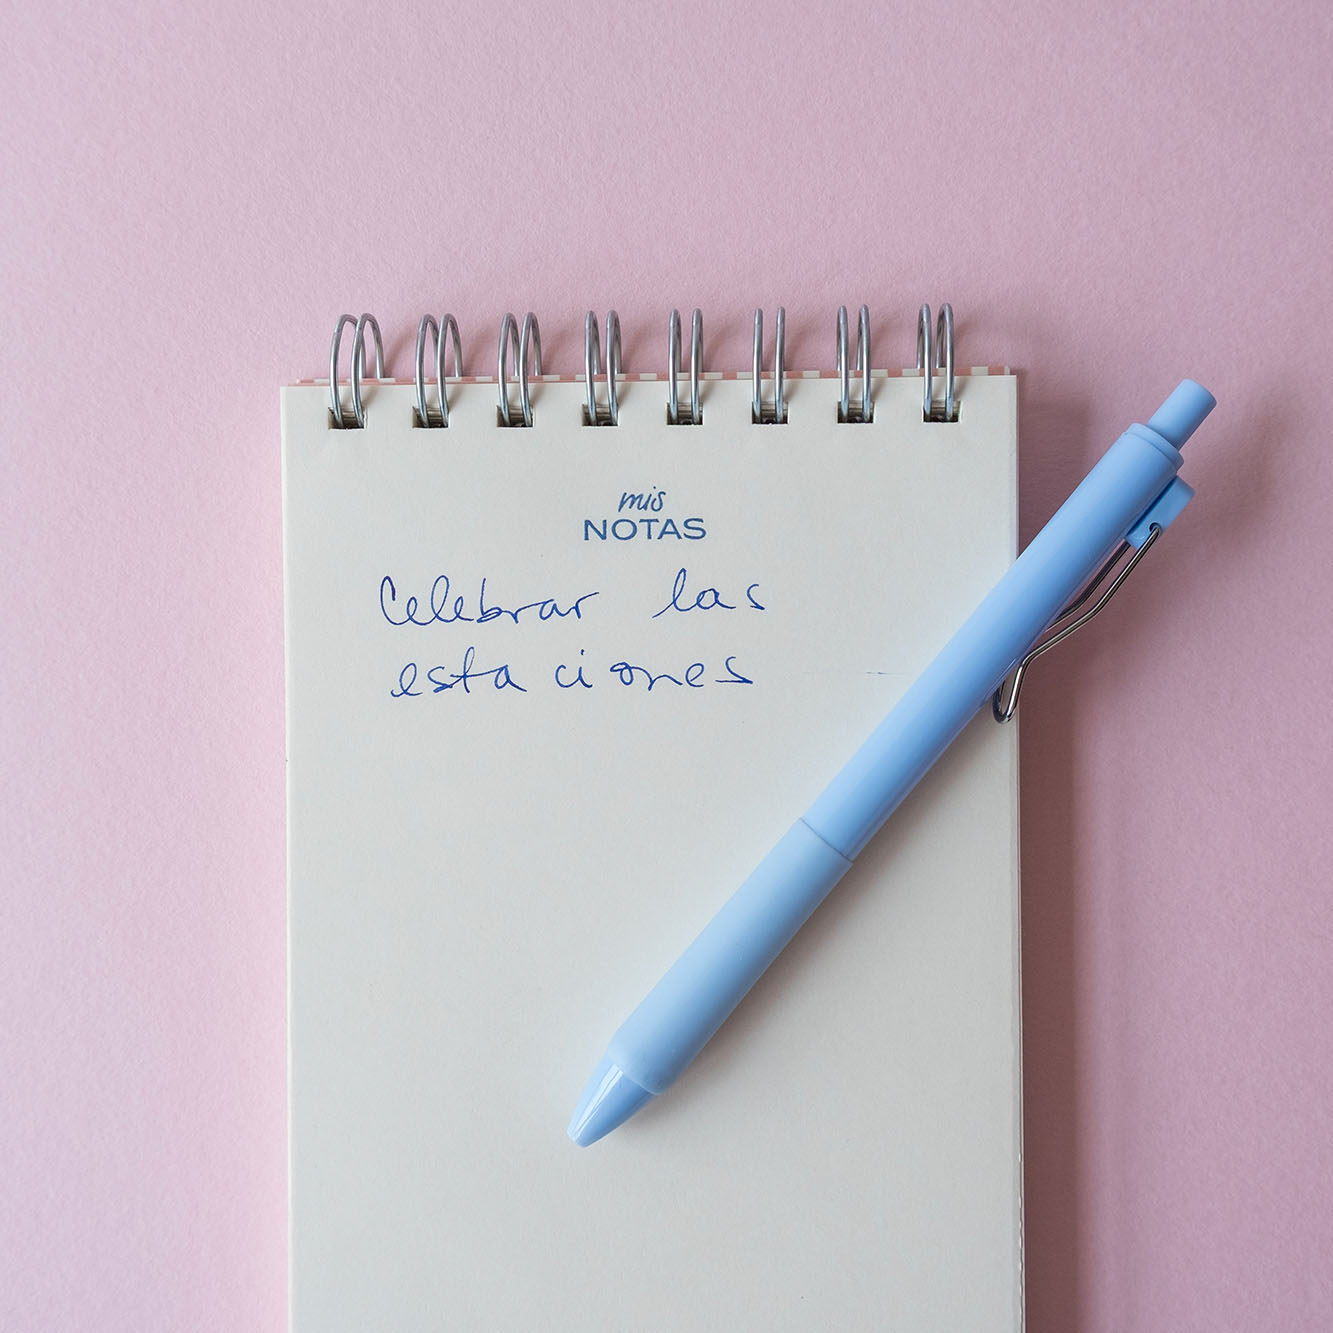 mis
NOTAS
Celebrar las
estaciones